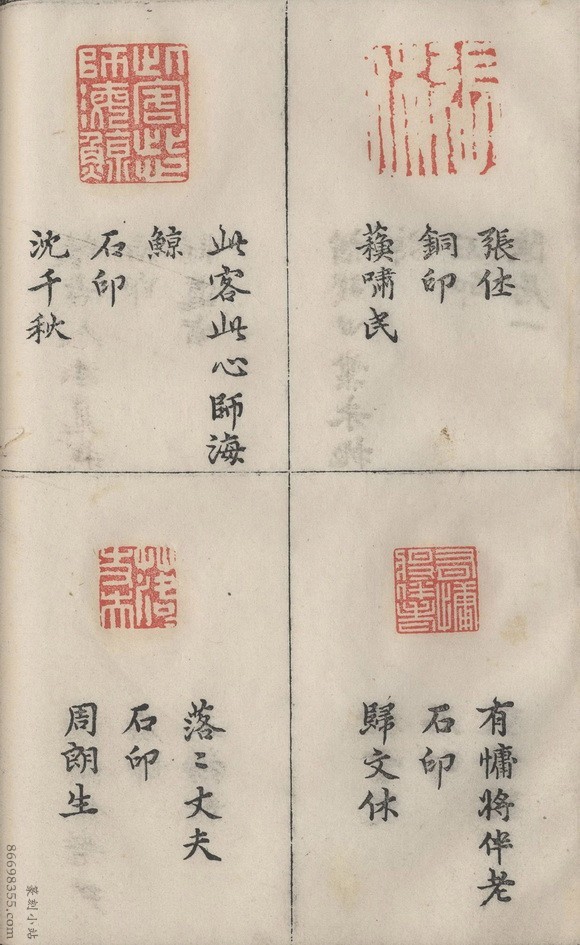 張
銅印
蘓嘯民
此客此心師海
鯨
石印
沈千秋
有慵將伴老
石印
歸文休
落〻丈夫
石印
周朗生
篆刻小站
86698355.com